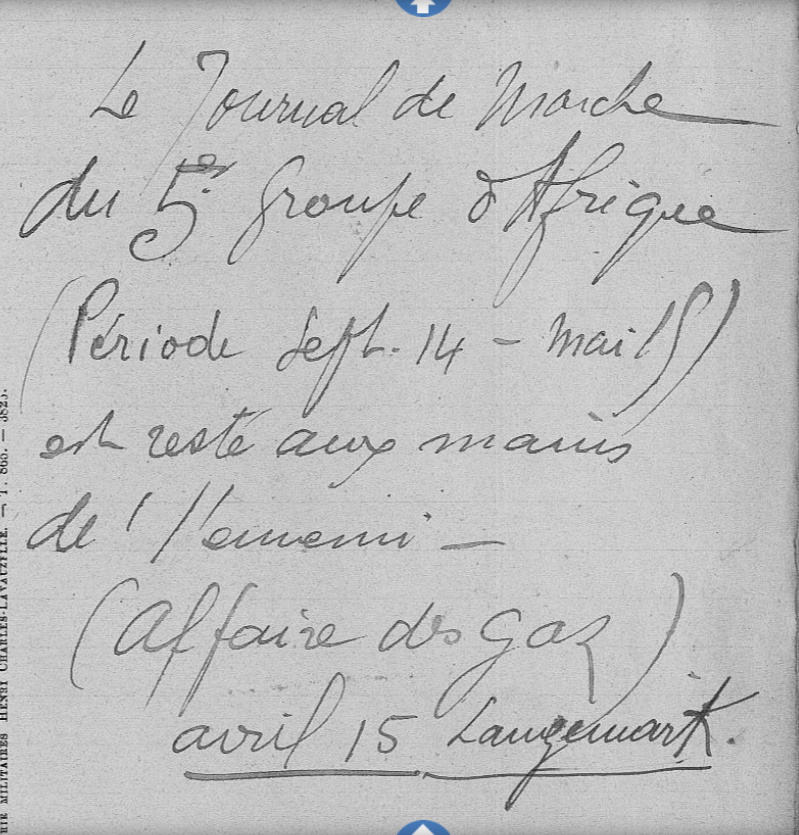 Le Journal de Marche
du 5e Groupe d'Afrique
(Période Sept. 14 - Mai 15)
est resté aux mains
de l'ennemi -
(Affaire des Gaz)
avril 15 Langemark.
MILITAIRES HENRI CHARLES-LAVAUZELLE. — T. 865. — 3825.